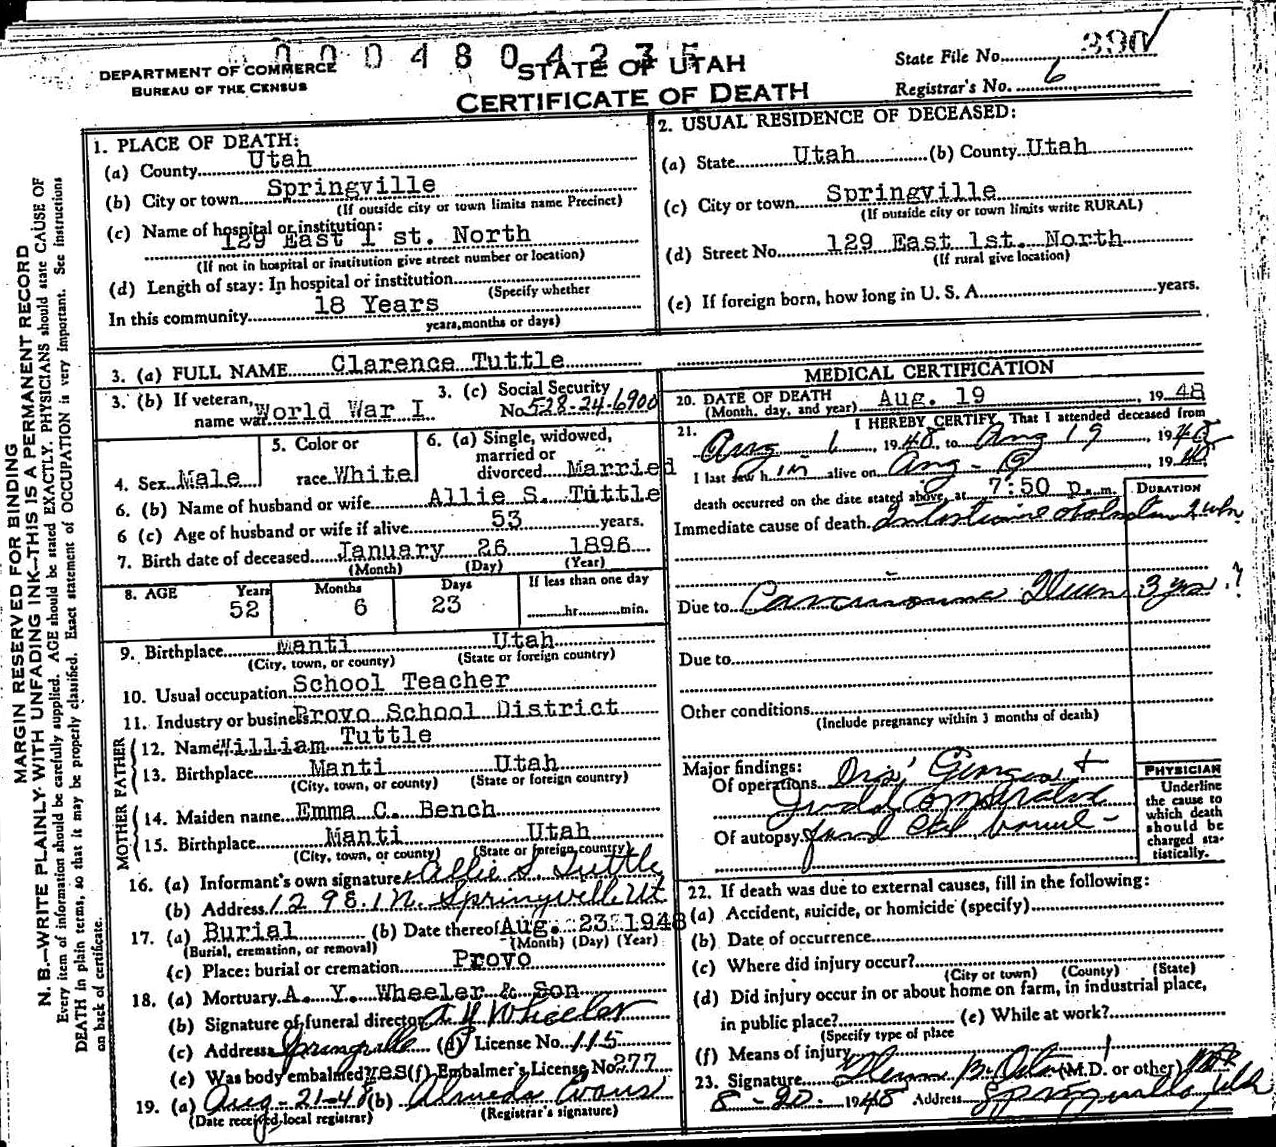 0004804235
DEPARTMENT OF COMMERCE
BUREAU OF THE CENSUS
STATE OF UTAH
CERTIFICATE OF DEATH
State File No. 390
Registrar's No. 6
MARGIN RESERVED FOR BINDING
N. B.—WRITE PLAINLY WITH UNFADING INK—THIS IS A PERMANENT RECORD
Every item of information should be carefully supplied. AGE should be stated EXACTLY. PHYSICIANS should state CAUSE OF
DEATH in plain terms, so that it may be properly classified. Exact statement of OCCUPATION is very important. See instructions
on back of certificate.
1. PLACE OF DEATH:
(a) County Utah
(b) City or town Springville
(If outside city or town limits name Precinct)
(c) Name of hospital or institution:
129 East 1 st. North
(If not in hospital or institution give street number or location)
(d) Length of stay: In hospital or institution
(Specify whether
In this community 18 Years
years, months or days)
2. USUAL RESIDENCE OF DECEASED:
(a) State Utah (b) County Utah
(c) City or town Springville
(If outside city or town limits write RURAL)
(d) Street No. 129 East 1st. North
(If rural give location)
(e) If foreign born, how long in U. S. A. years.
3. (a) FULL NAME Clarence Tuttle
3. (b) If veteran,
name war World War I
3. (c) Social Security
No. 528-24-6900
4. Sex Male
5. Color or
race White
6. (a) Single, widowed,
married or
divorced Married
6. (b) Name of husband or wife Allie S. Tuttle
6 (c) Age of husband or wife if alive 53 years.
7. Birth date of deceased January 26 1896
(Month) (Day) (Year)
8. AGE Years Months Days If less than one day
52 6 23 hr. min.
9. Birthplace Manti Utah
(City, town, or county) (State or foreign country)
10. Usual occupation School Teacher
11. Industry or business Provo School District
FATHER
12. Name William Tuttle
13. Birthplace Manti Utah
(City, town, or county) (State or foreign country)
MOTHER
14. Maiden name Emma C. Bench
15. Birthplace Manti Utah
(City, town, or county) (State or foreign country)
16. (a) Informant's own signature Allie S. Tuttle
(b) Address 129 E. 1 N. Springville, Ut
17. (a) Burial (b) Date thereof Aug. 23 1948
(Burial, cremation, or removal) (Month) (Day) (Year)
(c) Place: burial or cremation Provo
18. (a) Mortuary A. Y. Wheeler & Son
(b) Signature of funeral director A Y Wheeler
(c) Address Springville (d) License No. 115
(e) Was body embalmed? yes (f) Embalmer's License No. 277
19. (a) Aug-21-48 (b) Almeda Evans
(Date received, local registrar) (Registrar's signature)
MEDICAL CERTIFICATION
20. DATE OF DEATH Aug. 19, 1948
(Month, day, and year)
21. I HEREBY CERTIFY, That I attended deceased from
Aug 1, 1948, to Aug 19, 1948
I last saw him alive on Aug-19, 1948
death occurred on the date stated above, at 7:50 p.m.
DURATION
Immediate cause of death 2 wks
Due to Carcinoma Ileum 3 yrs ?
Due to
Other conditions
(Include pregnancy within 3 months of death)
Major findings:
Of operations Drs. &
Of autopsy
PHYSICIAN
Underline
the cause to
which death
should be
charged sta-
tistically.
22. If death was due to external causes, fill in the following:
(a) Accident, suicide, or homicide (specify)
(b) Date of occurrence
(c) Where did injury occur?
(City or town) (County) (State)
(d) Did injury occur in or about home on farm, in industrial place,
in public place? (e) While at work?
(Specify type of place
(f) Means of injury
23. Signature (M.D. or other)
8-20-1948 Address Springville Utah